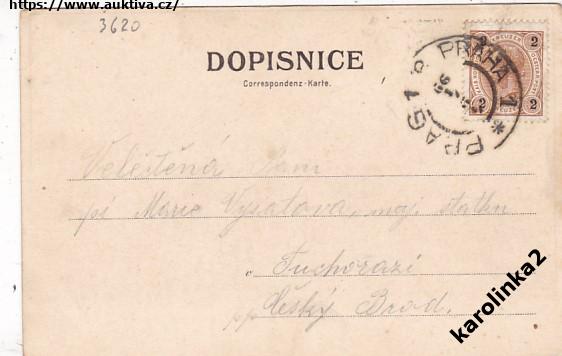 https://www.auktiva.cz/
3620
DOPISNICE
Correspondenz-Karte.
2 KREUZER 2
2 2
PRAHA 1
PRAG 1
Velectěná Paní
pí Marie Vysatova, maj. statku
Tuchorazi
pp Český Brod.
karolinka2